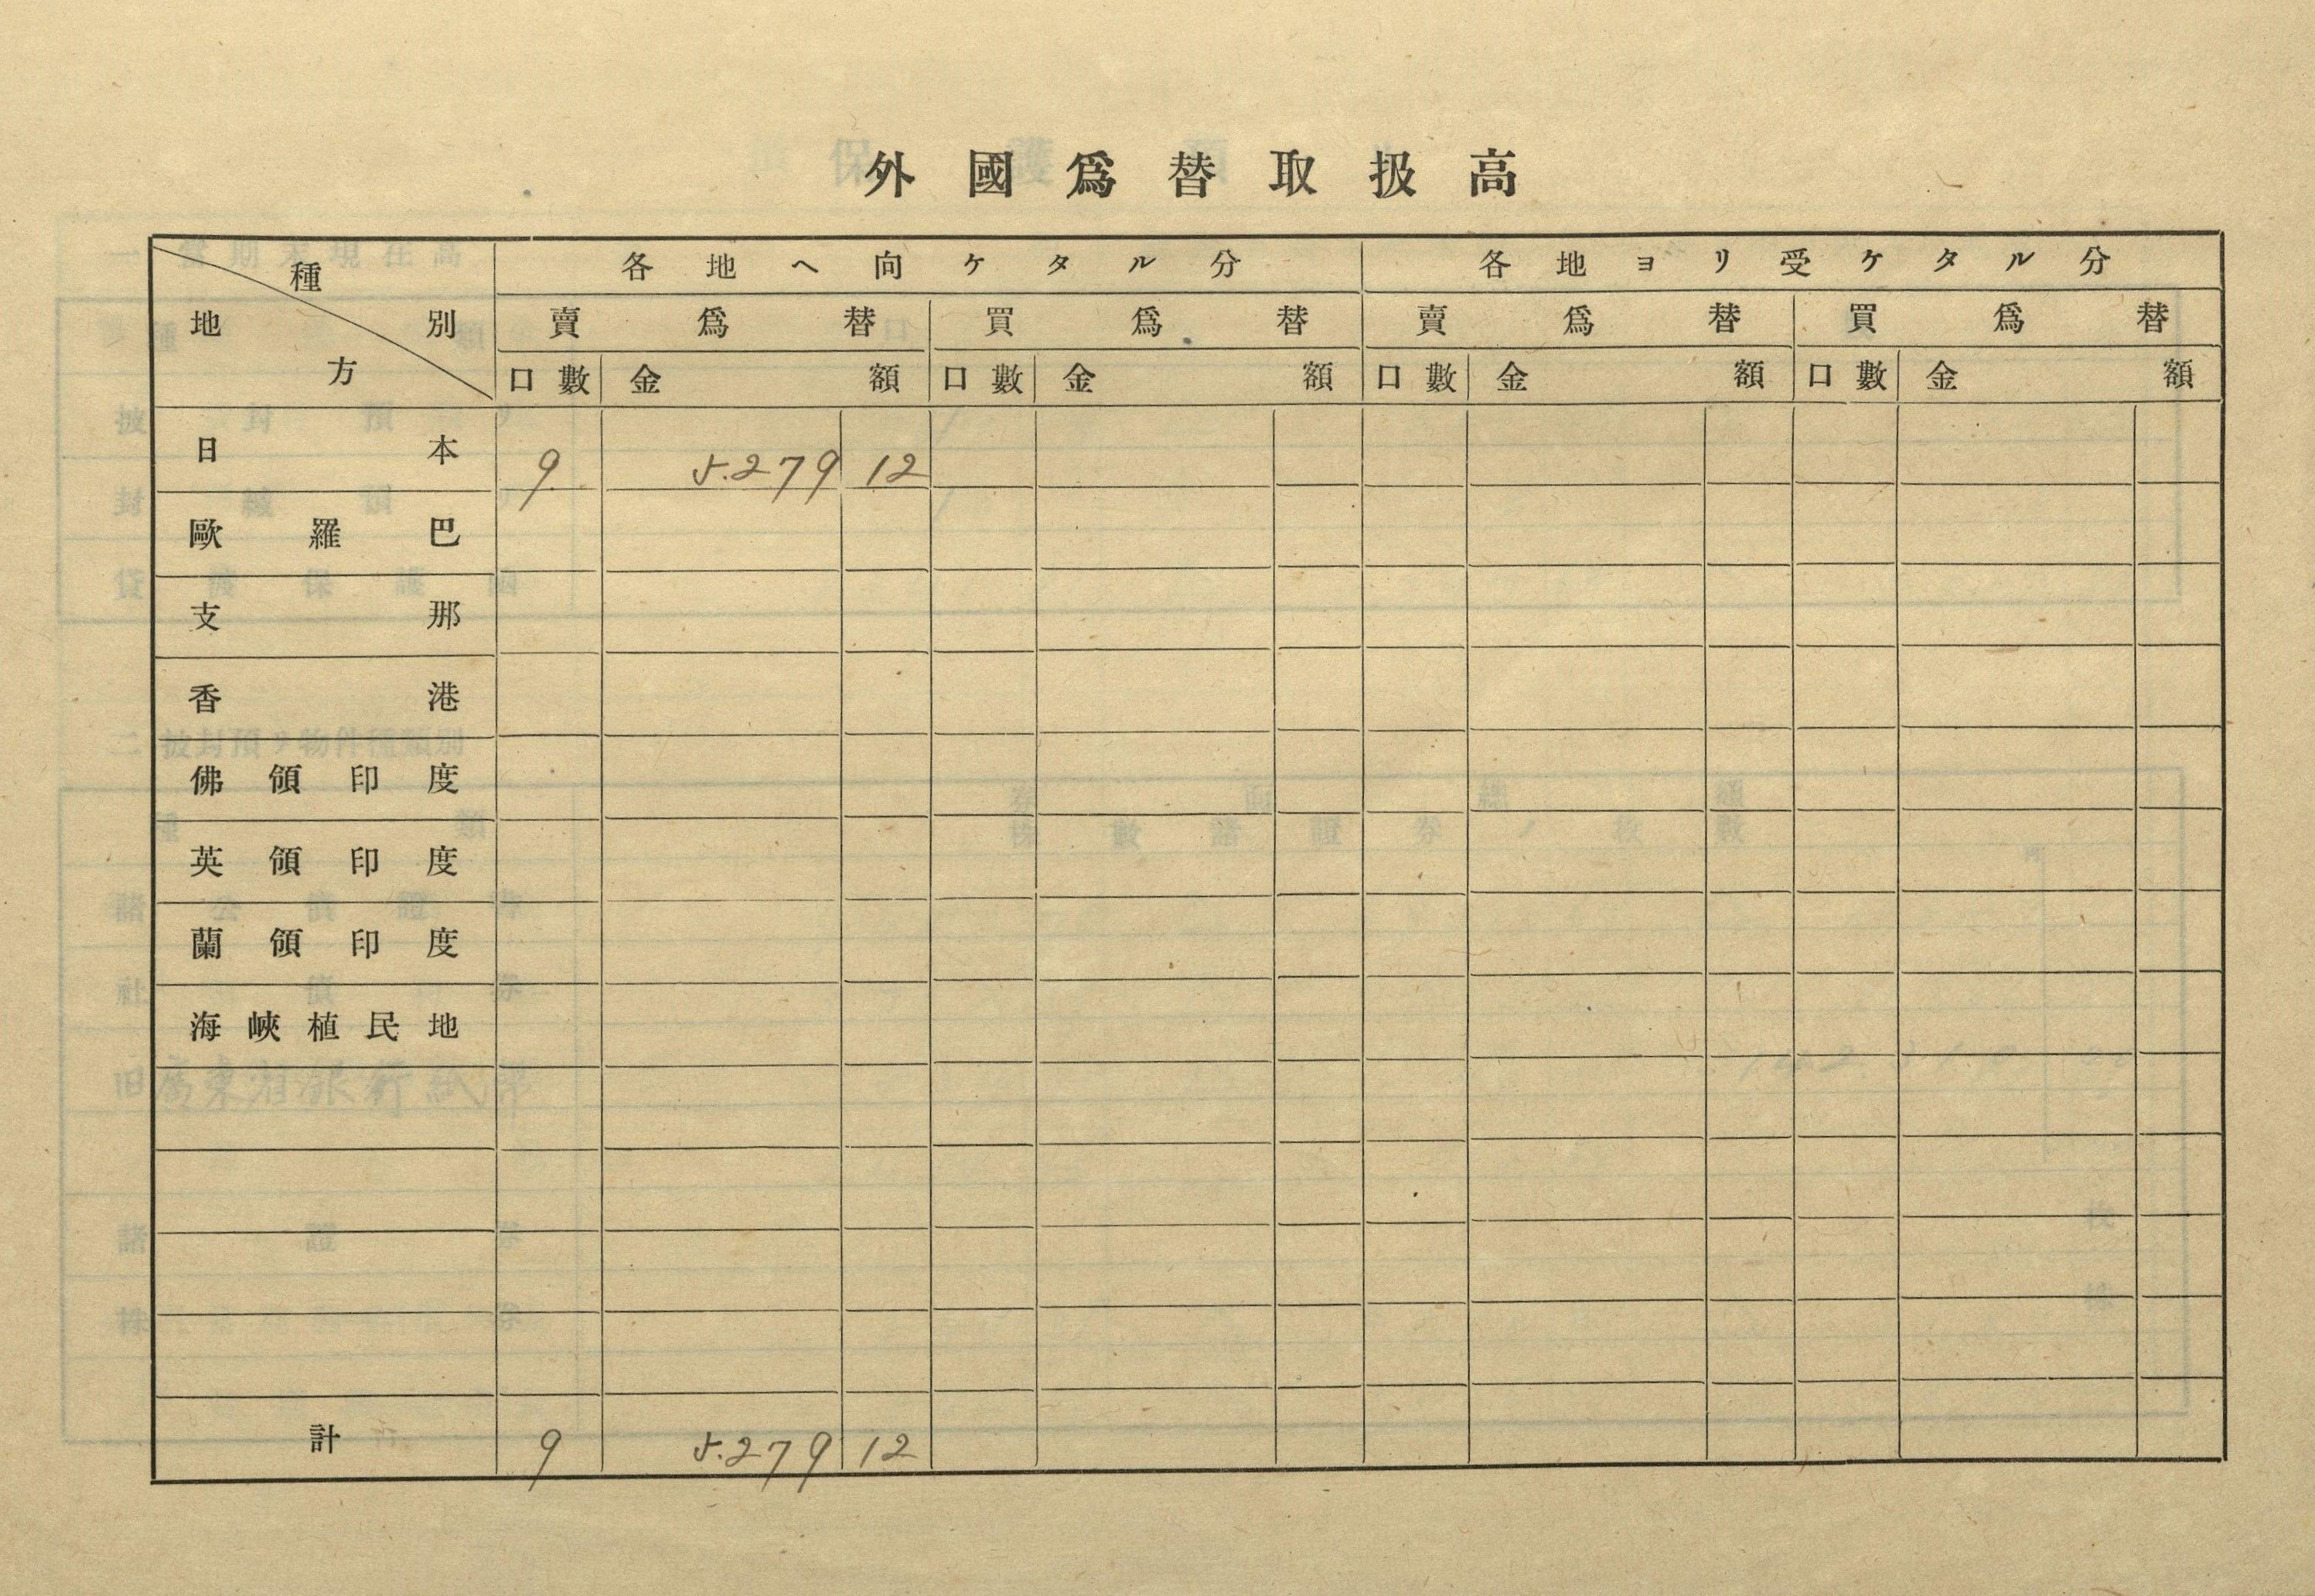 外國爲替取扱高
種別
地方
各地ヘ向ケタル分 各地ヨリ受ケタル分
賣爲替 買爲替 賣爲替 買爲替
口數 金額 口數 金額 口數 金額 口數 金額
日本 9 5.279 12
歐羅巴
支那
香港
佛領印度
英領印度
蘭領印度
海峽植民地
計 9 5.279 12